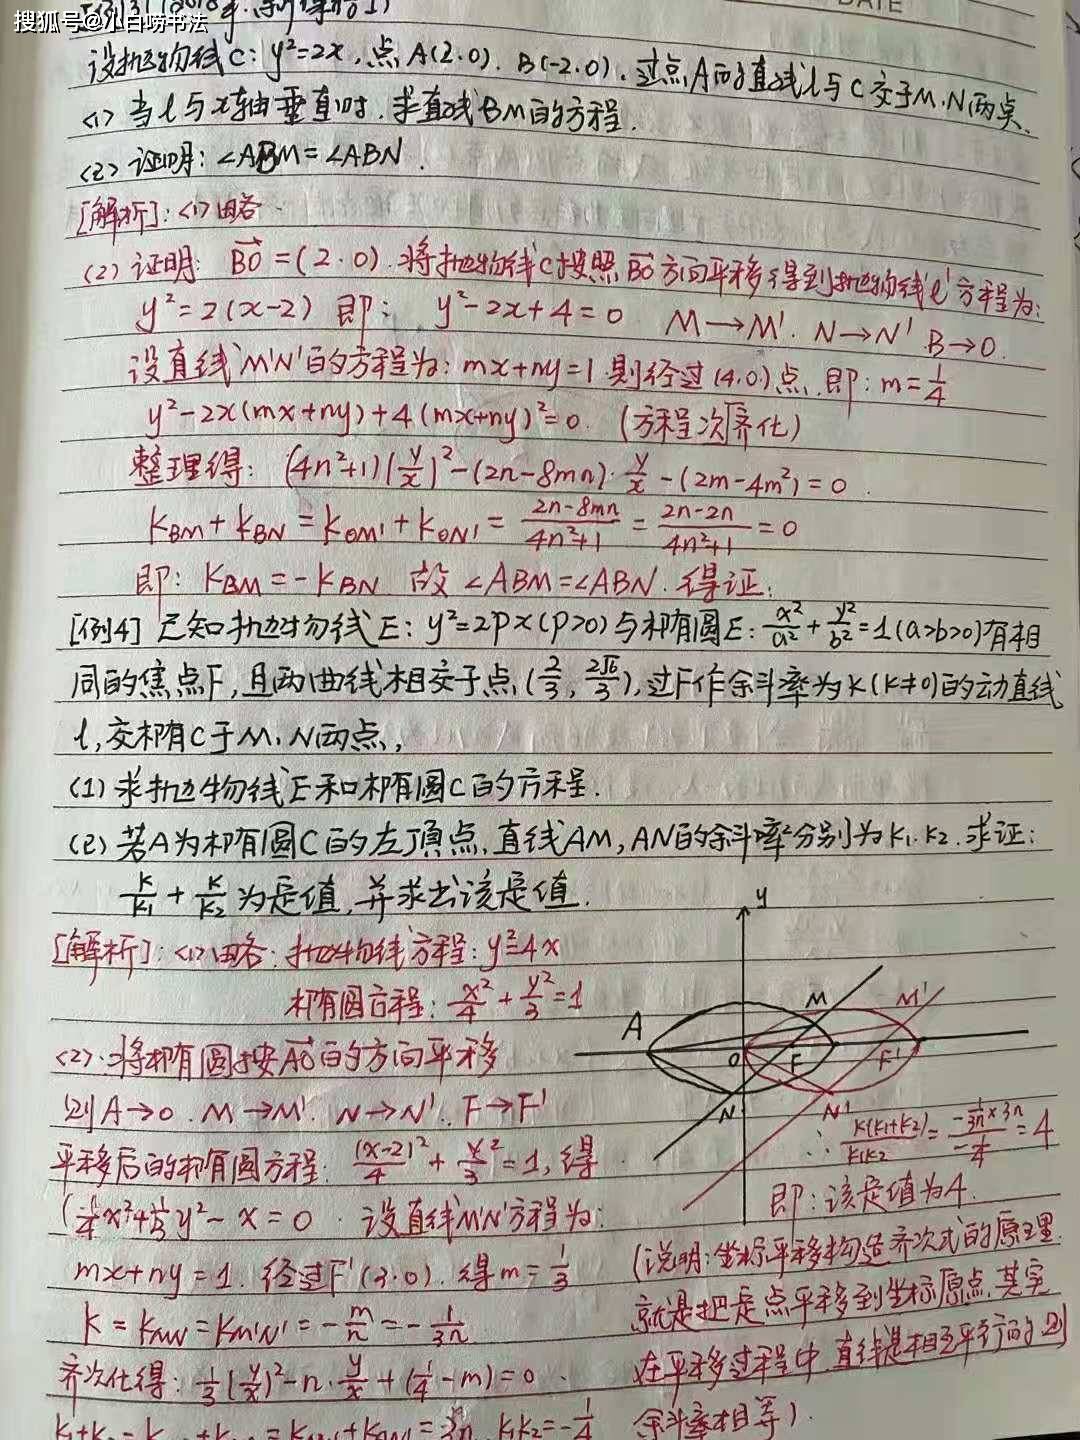 搜狐号@小白唠书法
DATE
设抛物线C: y²=2x, 点A(2.0). B(-2.0). 过点A的直线l与C交于M.N两点.
<1> 当l与x轴垂直时. 求直线BM的方程.
<2> 证明: ∠ABM=∠ABN.
[解析]: <1> 略.
(2) 证明: BO→=(2.0). 将抛物线C按照BO→方向平移得到抛物线l'方程为:
y²=2(x-2) 即: y²-2x+4=0. M→M'. N→N' B→O.
设直线M'N'的方程为: mx+ny=1. 则经过(4.0)点. 即: m=1/4
y²-2x(mx+ny)+4(mx+ny)²=0. (方程次齐化)
整理得: (4n²+1)(y/x)²-(2n-8mn)·y/x-(2m-4m²)=0.
kBM+kBN=kOM'+kON'=(2n-8mn)/(4n²+1)=(2n-2n)/(4n²+1)=0
即: kBM=-kBN 故∠ABM=∠ABN. 得证.
[例4] 已知抛物线E: y²=2px(p>0)与椭圆E: x²/a²+y²/b²=1(a>b>0)有相
同的焦点F, 且两曲线相交于点(2/3, 2√6/3), 过F作余斗率为k(k≠0)的动直线
l, 交椭圆C于M.N两点,
(1) 求抛物线E和椭圆C的方程.
(2) 若A为椭圆C的左顶点. 直线AM, AN的斜率分别为k1.k2. 求证:
k/k1+k/k2为定值, 并求出该定值.
[解析]: <1> 略: 抛物线方程: y²=4x
椭圆方程: x²/4+y²/3=1
<2>. 将椭圆按AO→的方向平移
则A→O. M→M'. N→N'. F→F'
平移后的椭圆方程: (x-2)²/4+y²/3=1, 得
(1/4x²+1/3y²-x=0. 设直线M'N'方程为:
mx+ny=1. 经过F'(3.0). 得m=1/3
k=kMN=kM'N'=-m/n=-1/3n
齐次化得: 1/3(y/x)²-n·y/x+(1/4-m)=0.
=3n k1k2=-1/4
y
A
M
M'
O
F
F'
N
N'
∴ k(k1+k2)/k1k2=(-1/3n×3n)/(-1/4)=4
即: 该定值为4.
(说明: 坐标平移构造齐次式的原理
就是把定点平移到坐标原点. 其实
在平移过程中, 直线是相互平行的则
斜率相等).